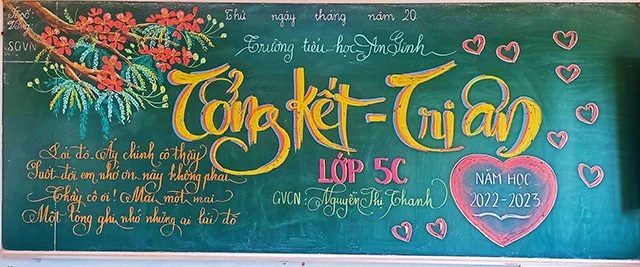 Sĩ số:
Vắng:
SOVN
Thứ ngày tháng năm 20
Trường tiểu học An Bình
Tổng kết - Tri ân
LỚP 5C
GVCN: Nguyễn Thị Thanh
NĂM HỌC
2022-2023
Lái đò. Ấy chính cô thầy
Suốt đời em nhớ ơn này không phai
Thầy cô ơi! Mai một mai
Một lòng ghi nhớ những ai lái đò